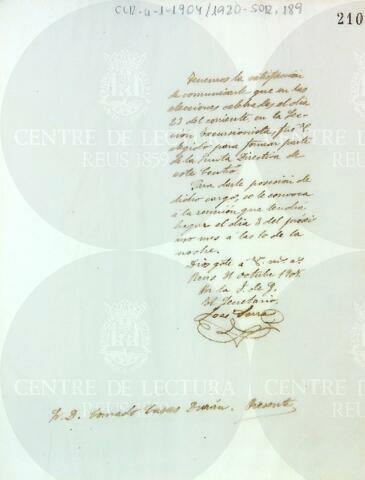 CLR-4-1-1904/1920-SOR, 189
210
Tenemos la satisfacción
de comunicarle que en las
elecciones celebradas el día
23 del corriente, en la Sec-
ción Excursionista, fué V.
elegido para formar parte
de la Junta Directiva de
este Centro.
Para darle posesión de
dicho cargo, se le convoca
a la reunión que tendrá
lugar el día 3 del próxi-
mo mes a las 10 de la
noche.
Dios gde a V. ms as
Reus 31 octubre
Por la J. de G.
El Secretario,
Serra
CENTRE DE LECTURA
REUS 1859
CENTRE DE LECTURA
REUS 1859
CENTRE DE LECTURA
REUS
CENTRE DE LECTURA
REUS
S. D. Conrado Casas Durán. Presente